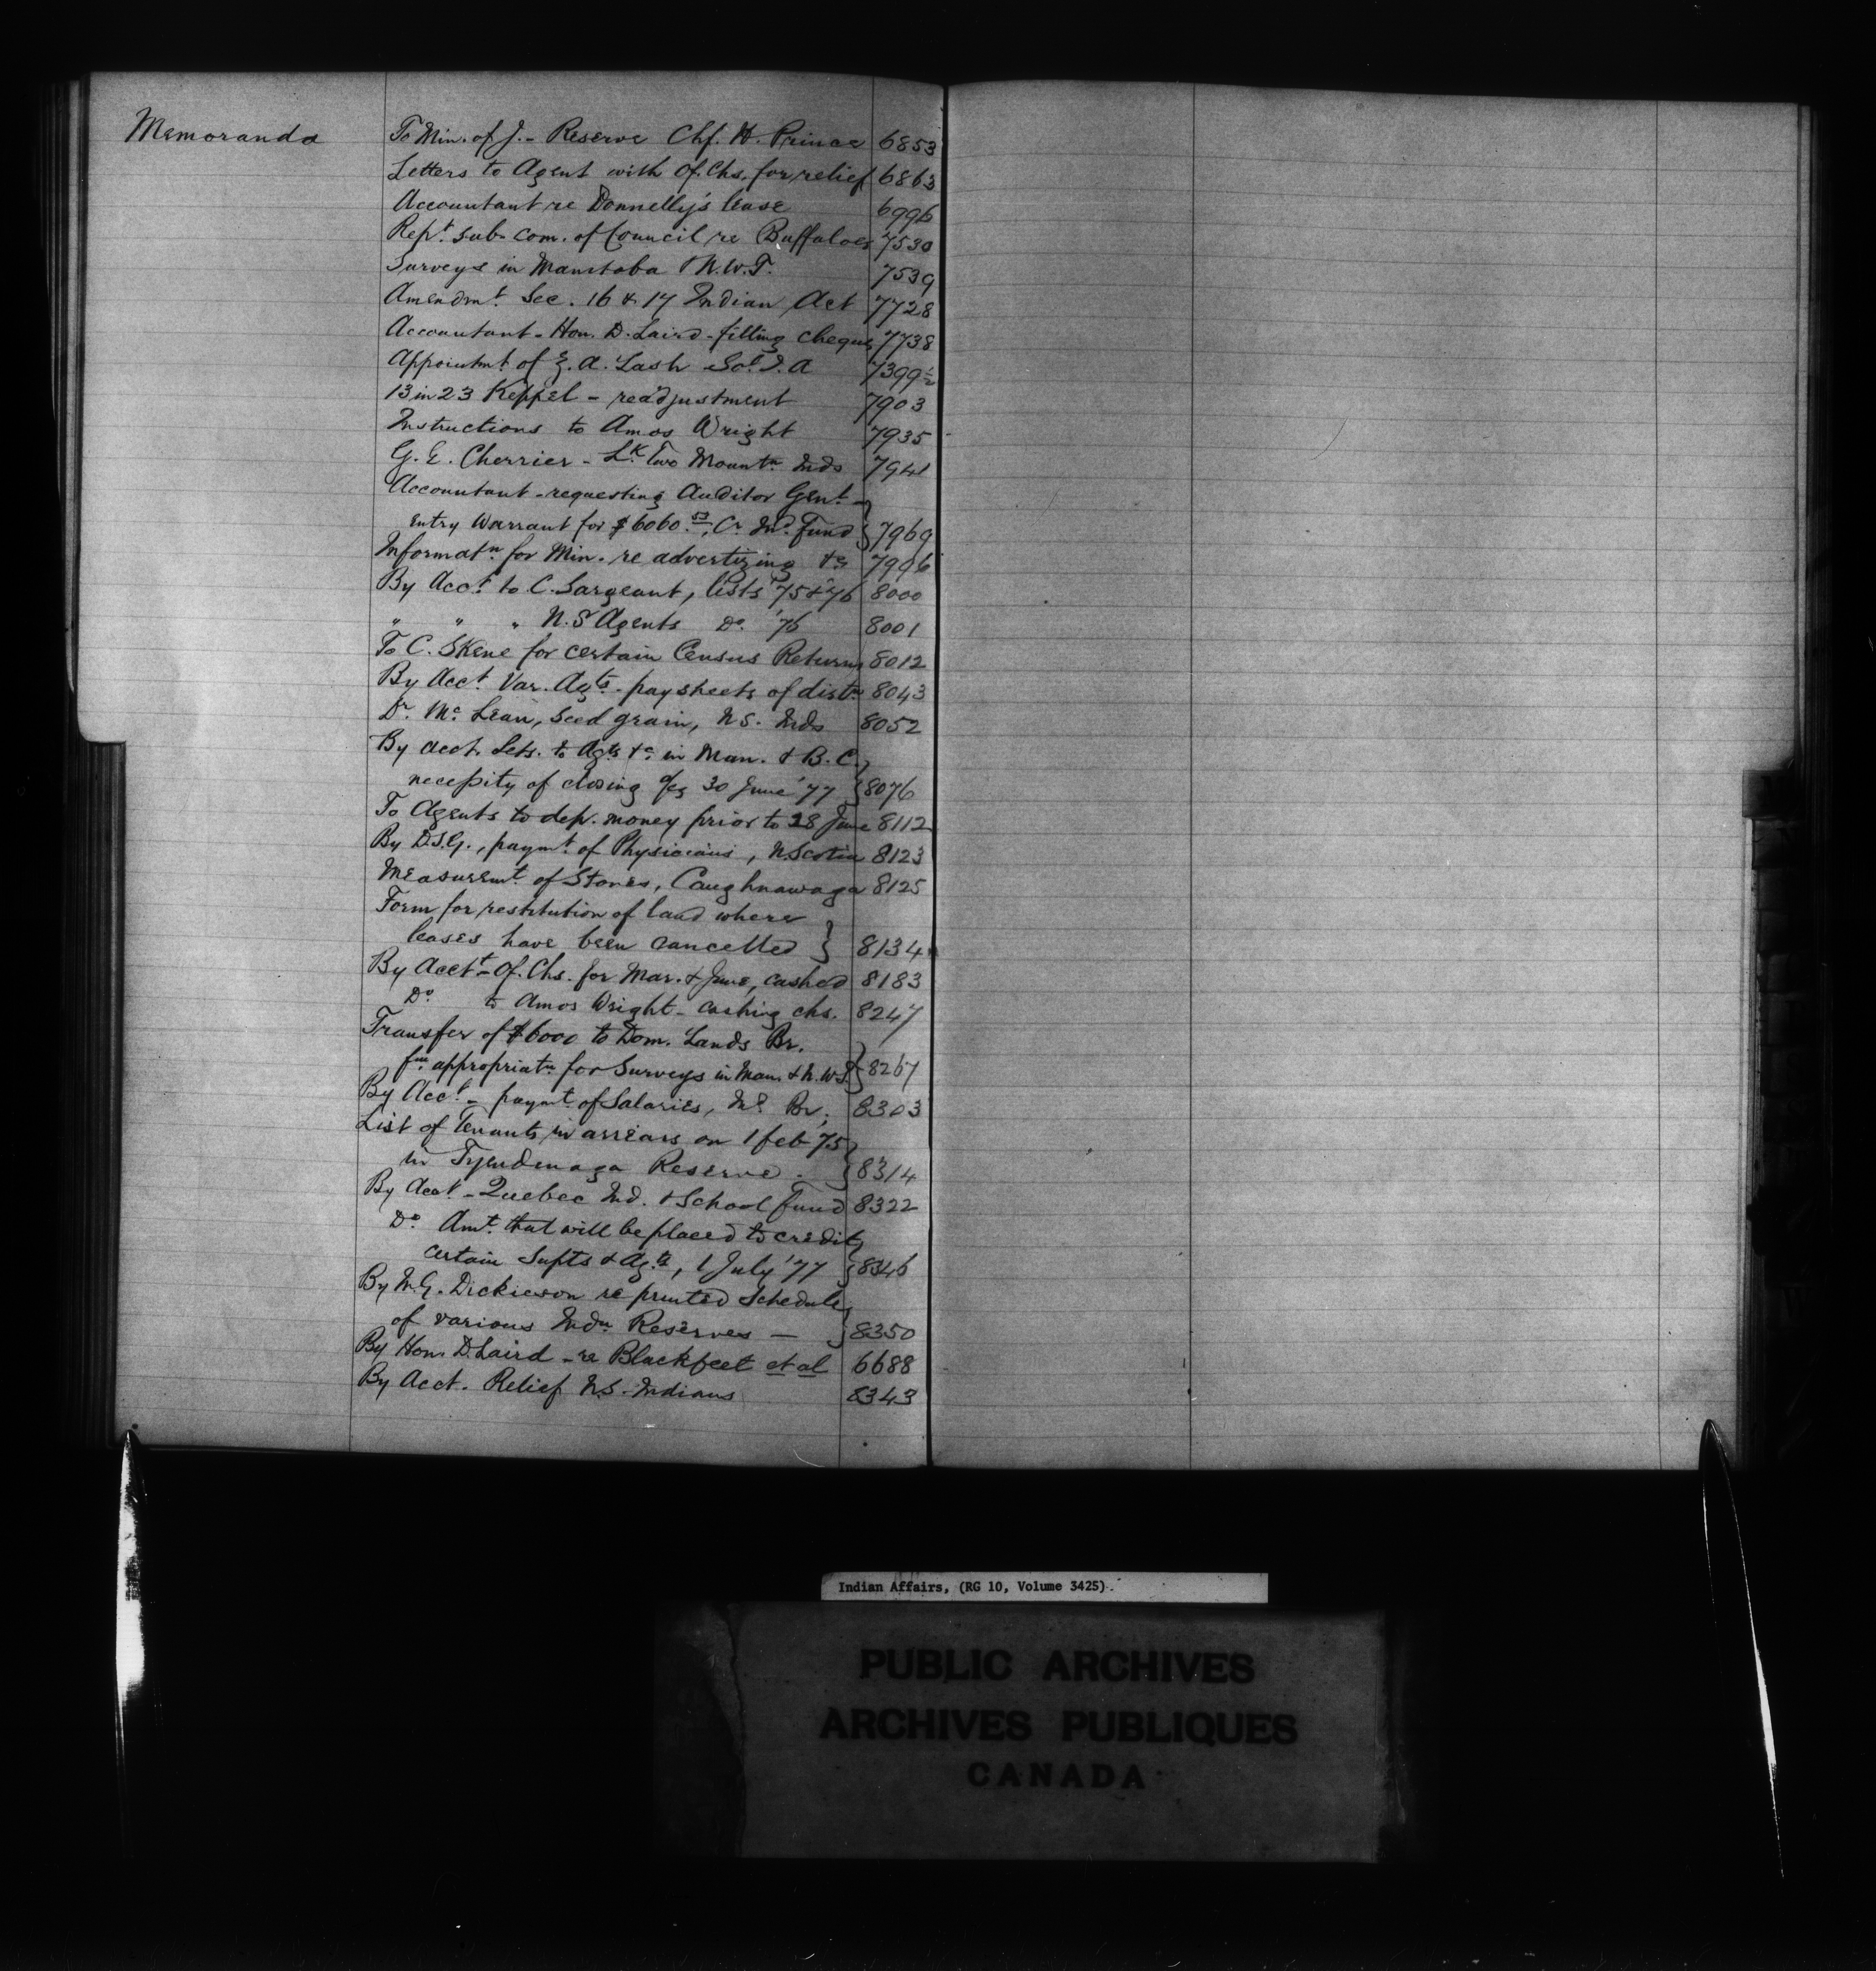 Memoranda
To Min. of J. - Reserve Chf. H. Prince 6853
Letters to Agent with Of. Chs. for relief 6863
Accountant re Donnelly's lease 6996
Rept. sub-com. of Council re Buffaloes 7530
Surveys in Manitoba & N.W.T. 7539
Amendmt. Sec. 16 & 17 Indian Act 7728
Accountant - Hon. D. Laird - filling cheques 7738
Appointmt. of Z. A. Lash Sol. I. A 7399½
13 in 23 Keppel - readjustment 7903
Instructions to Amos Wright 7935
G. E. Cherrier - Lk. Two Mountn. Inds 7941
Accountant - requesting Auditor Genl. -
entry Warrant for $6060.53, Cr. Ind. Fund } 7969
Informatn. for Min. re advertizing &c 7996
By Acct. to C. Sargeant, lists '75 & '76 8000
" " " N.S Agents Do. '76 8001
To C. Skene for certain Census Returns 8012
By Acct. Var. Agts. - pay sheets of distn 8043
Dr. McLean, seed grain, N.S. Inds 8052
By Acct. Lets. to Agts &c in Man. & B.C.
necessity of closing a/cs 30 June '77 } 8076
To Agents to dep. money prior to 28 June 8112
By D.S.G., paymt. of Physicians, N. Scotia 8123
Measuremt. of Stones, Caughnawaga 8125
Form for restitution of land where
leases have been cancelled } 8134
By Acctt - Of. Chs. for Mar. & June, cashed 8183
Do to Amos Wright - cashing chs. 8247
Transfer of $6000 to Dom. Lands Br.
fm. appropriatn. for Surveys in Man. & N.W.T. } 8267
By Acct. - paymt. of Salaries, Ind. Br. 8303
List of Tenants in arrears on 1 feb '75
in Tyendenaga Reserve - } 8314
By Acct. - Quebec Ind. & School fund 8322
Do. Amt. that will be placed to credit
certain Supts & Agts., 1 July '77 } 8346
By M.G. Dickieson re printed Schedules
of various Indn Reserves - } 8350
By Hon. D. Laird - re Blackfeet et al 6688
By Acct. Relief N.S. Indians 8343
Indian Affairs, (RG 10, Volume 3425).
PUBLIC ARCHIVES
ARCHIVES PUBLIQUES
CANADA